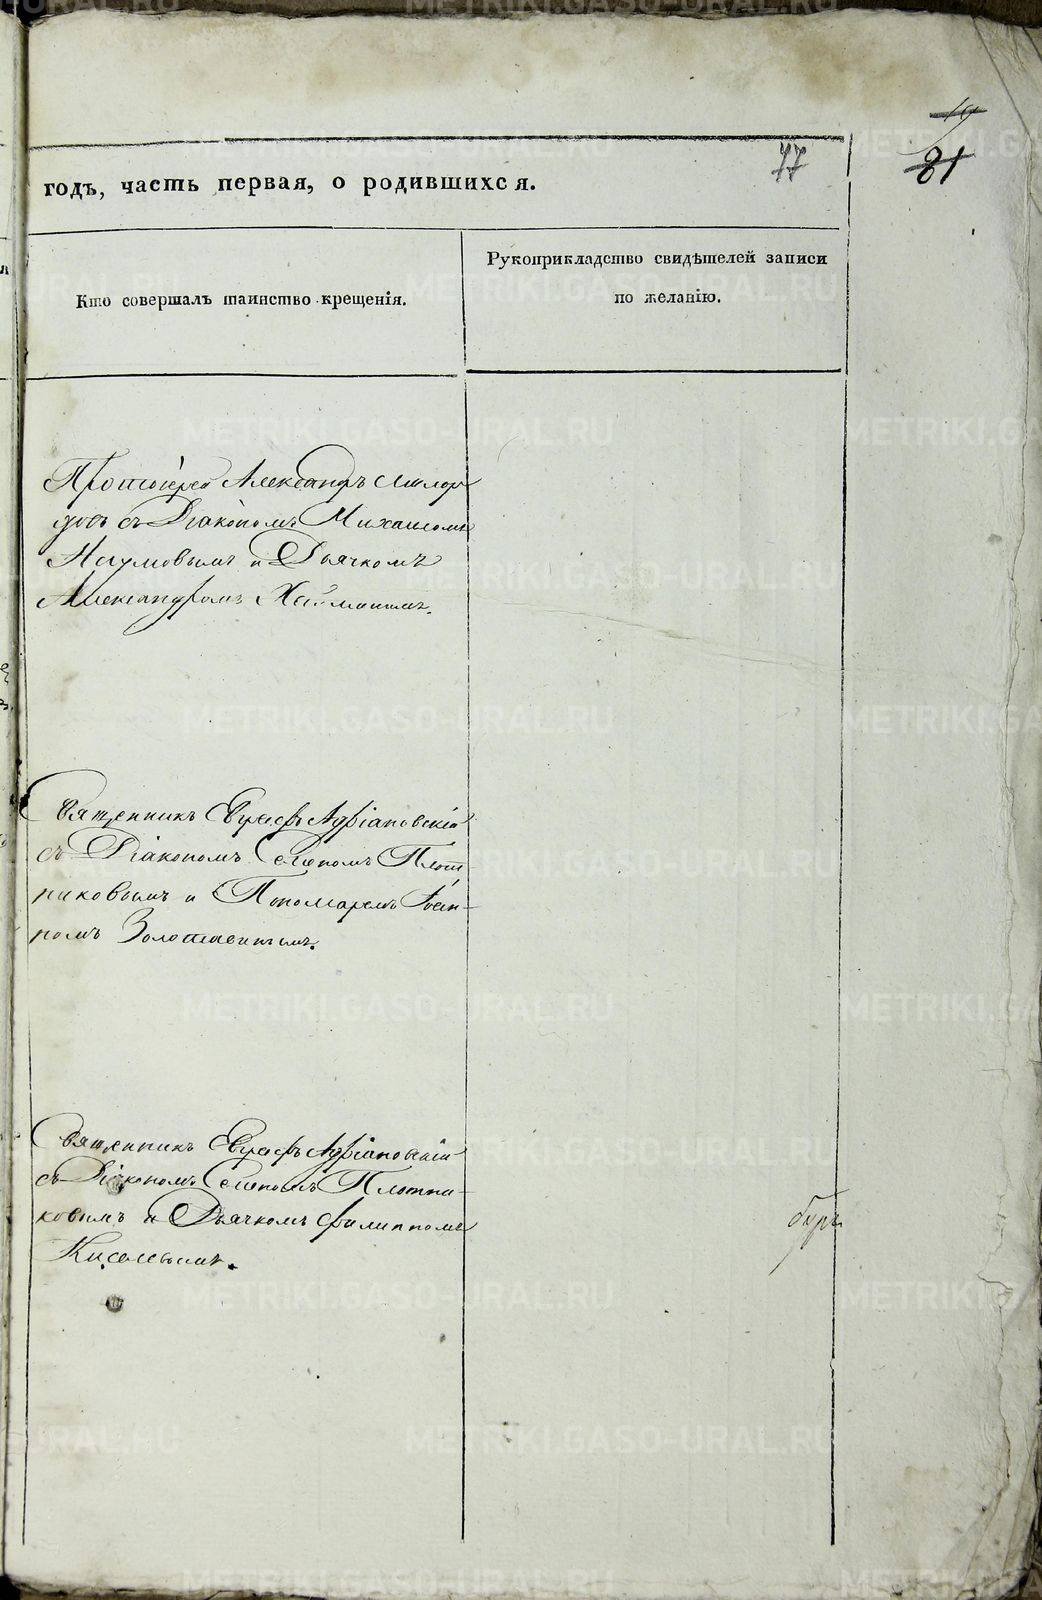 77
81
годъ, часть первая, о родившихся.
Кто совершалъ таинство крещенія.
Рукоприкладство свидѣтелей записи
по желанію.
Протоіерей Александръ
съ Діакономъ Михаиломъ
Наумовымъ и Дьячкомъ
Александромъ
Священникъ Евграфъ Адріановскій
съ Діакономъ Семеномъ Плот
никовымъ и Пономаремъ
Священникъ Евграфъ Адріановскій
съ Діакономъ Семеномъ Плотни-
ковымъ и Дьячкомъ Филиппомъ
Киселевымъ.
METRIKI.GASO-URAL.RU